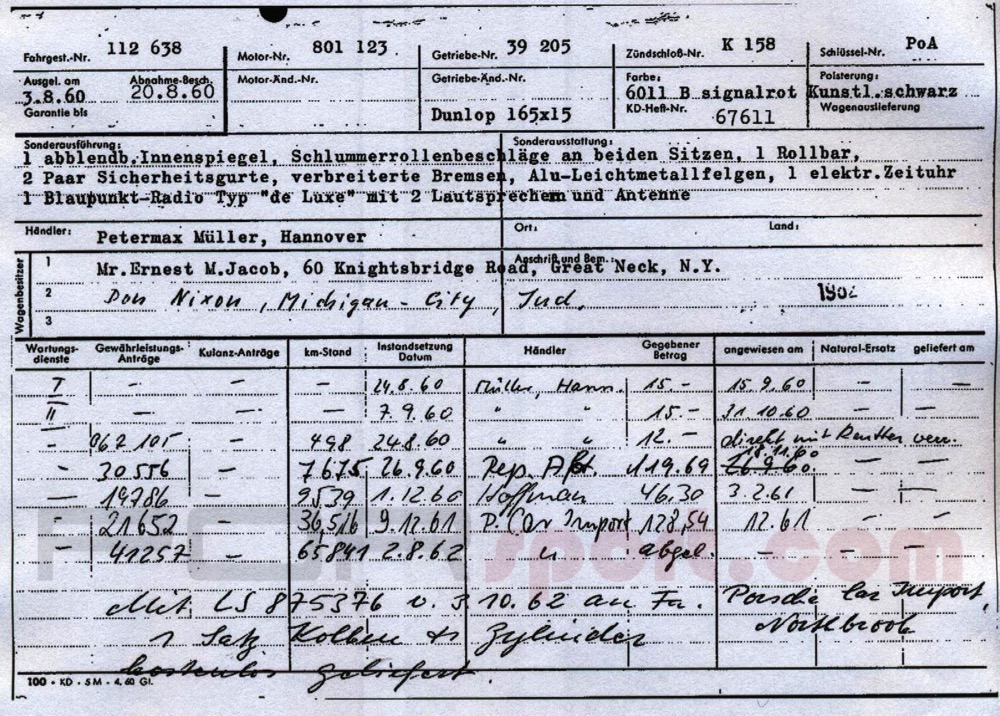 Fahrgest.-Nr. 112 638 Motor-Nr. 801 123 Getriebe-Nr. 39 205 Zündschloß-Nr. K 158 Schlüssel-Nr. PoA
Ausgel. am 3.8.60 Abnahme-Besch. 20.8.60 Motor-Änd.-Nr. Getriebe-Änd.-Nr. Farbe: 6011 B signalrot Polsterung: Kunstl. schwarz
Garantie bis Dunlop 165x15 KD-Heft-Nr. 67611 Wagenauslieferung
Sonderausführung: Sonderausstattung:
1 abblendb.Innenspiegel, Schlummerrollenbeschläge an beiden Sitzen, 1 Rollbar,
2 Paar Sicherheitsgurte, verbreiterte Bremsen, Alu-Leichtmetallfelgen, 1 elektr.Zeituhr
1 Blaupunkt-Radio Typ "de Luxe" mit 2 Lautsprechern und Antenne
Händler: Petermax Müller, Hannover Ort: Land:
Wagenbesitzer Anschrift und Bem.:
1 Mr.Ernest M.Jacob, 60 Knightsbridge Road, Great Neck, N.Y.
2 Don Nixon, Michigan-City, Ind. 1962
3
Wartungsdienste Gewährleistungs-Anträge Kulanz-Anträge km-Stand Instandsetzung Datum Händler Gegebener Betrag angewiesen am Natural-Ersatz geliefert am
I – – – 24.8.60 Müller, Hann. 15.- 15.9.60 – –
II – – – 7.9.60 " " 15.- 31.10.60 – –
– 062 105 – 498 24.8.60 " " 12.- direkt mit Reutter verr.
– 30556 – 7675 26.9.60 Rep. Abt. 119.69 26.9.60 18.11.60 – –
– 19786 – 9539 1.12.60 Hoffman 46.30 3.2.61 – –
– 21652 – 36,516 9.12.61 P. Car Import 128,54 12.61 – –
– 41257 – 65841 2.8.62 " abgel. – – –
Mit LS 875376 v. 3.10.62 an Fa. Porsche Car Import, Northbrook
1 Satz Kolben + Zylinder
kostenlos geliefert.
100 • KD • 5M • 4.60 Gl.
sport.com